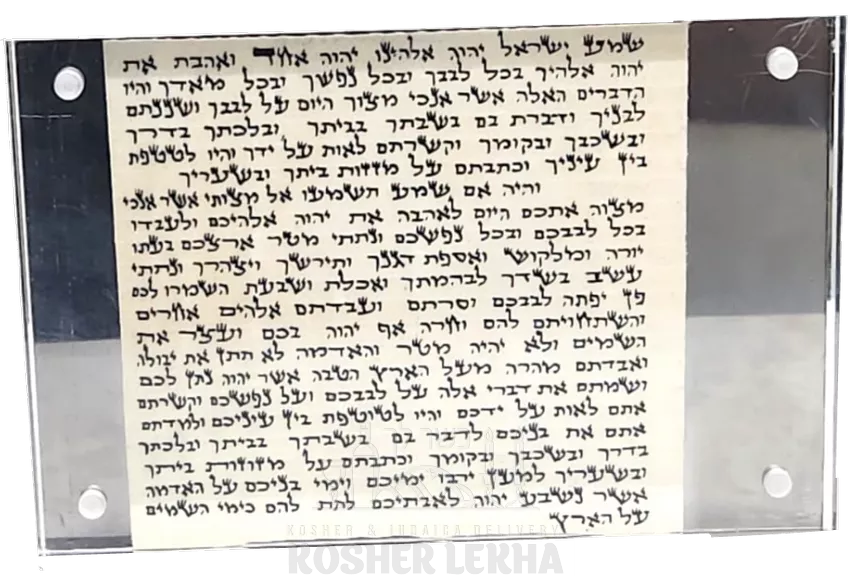 שמע ישראל יהוה אלהינו יהוה אחד ואהבת את
יהוה אלהיך בכל לבבך ובכל נפשך ובכל מאדך והיו
הדברים האלה אשר אנכי מצוך היום על לבבך ושננתם
לבניך ודברת בם בשבתך בביתך ובלכתך בדרך
ובשכבך ובקומך וקשרתם לאות על ידך והיו לטטפת
בין עיניך וכתבתם על מזזות ביתך ובשעריך
והיה אם שמע תשמעו אל מצותי אשר אנכי
מצוה אתכם היום לאהבה את יהוה אלהיכם ולעבדו
בכל לבבכם ובכל נפשכם ונתתי מטר ארצכם בעתו
יורה ומלקוש ואספת דגנך ותירשך ויצהרך ונתתי
עשב בשדך לבהמתך ואכלת ושבעת השמרו לכם
פן יפתה לבבכם וסרתם ועבדתם אלהים אחרים
והשתחויתם להם וחרה אף יהוה בכם ועצר את
השמים ולא יהיה מטר והאדמה לא תתן את יבולה
ואבדתם מהרה מעל הארץ הטבה אשר יהוה נתן לכם
ושמתם את דברי אלה על לבבכם ועל נפשכם וקשרתם
אתם לאות על ידכם והיו לטוטפת בין עיניכם ולמדתם
אתם את בניכם לדבר בם בשבתך בביתך ובלכתך
בדרך ובשכבך ובקומך וכתבתם על מזוזות ביתך
ובשעריך למען ירבו ימיכם וימי בניכם על האדמה
אשר נשבע יהוה לאבתיכם לתת להם כימי השמים
על הארץ
KOSHER & JUDAICA DELIVERY
KOSHER LEKHA